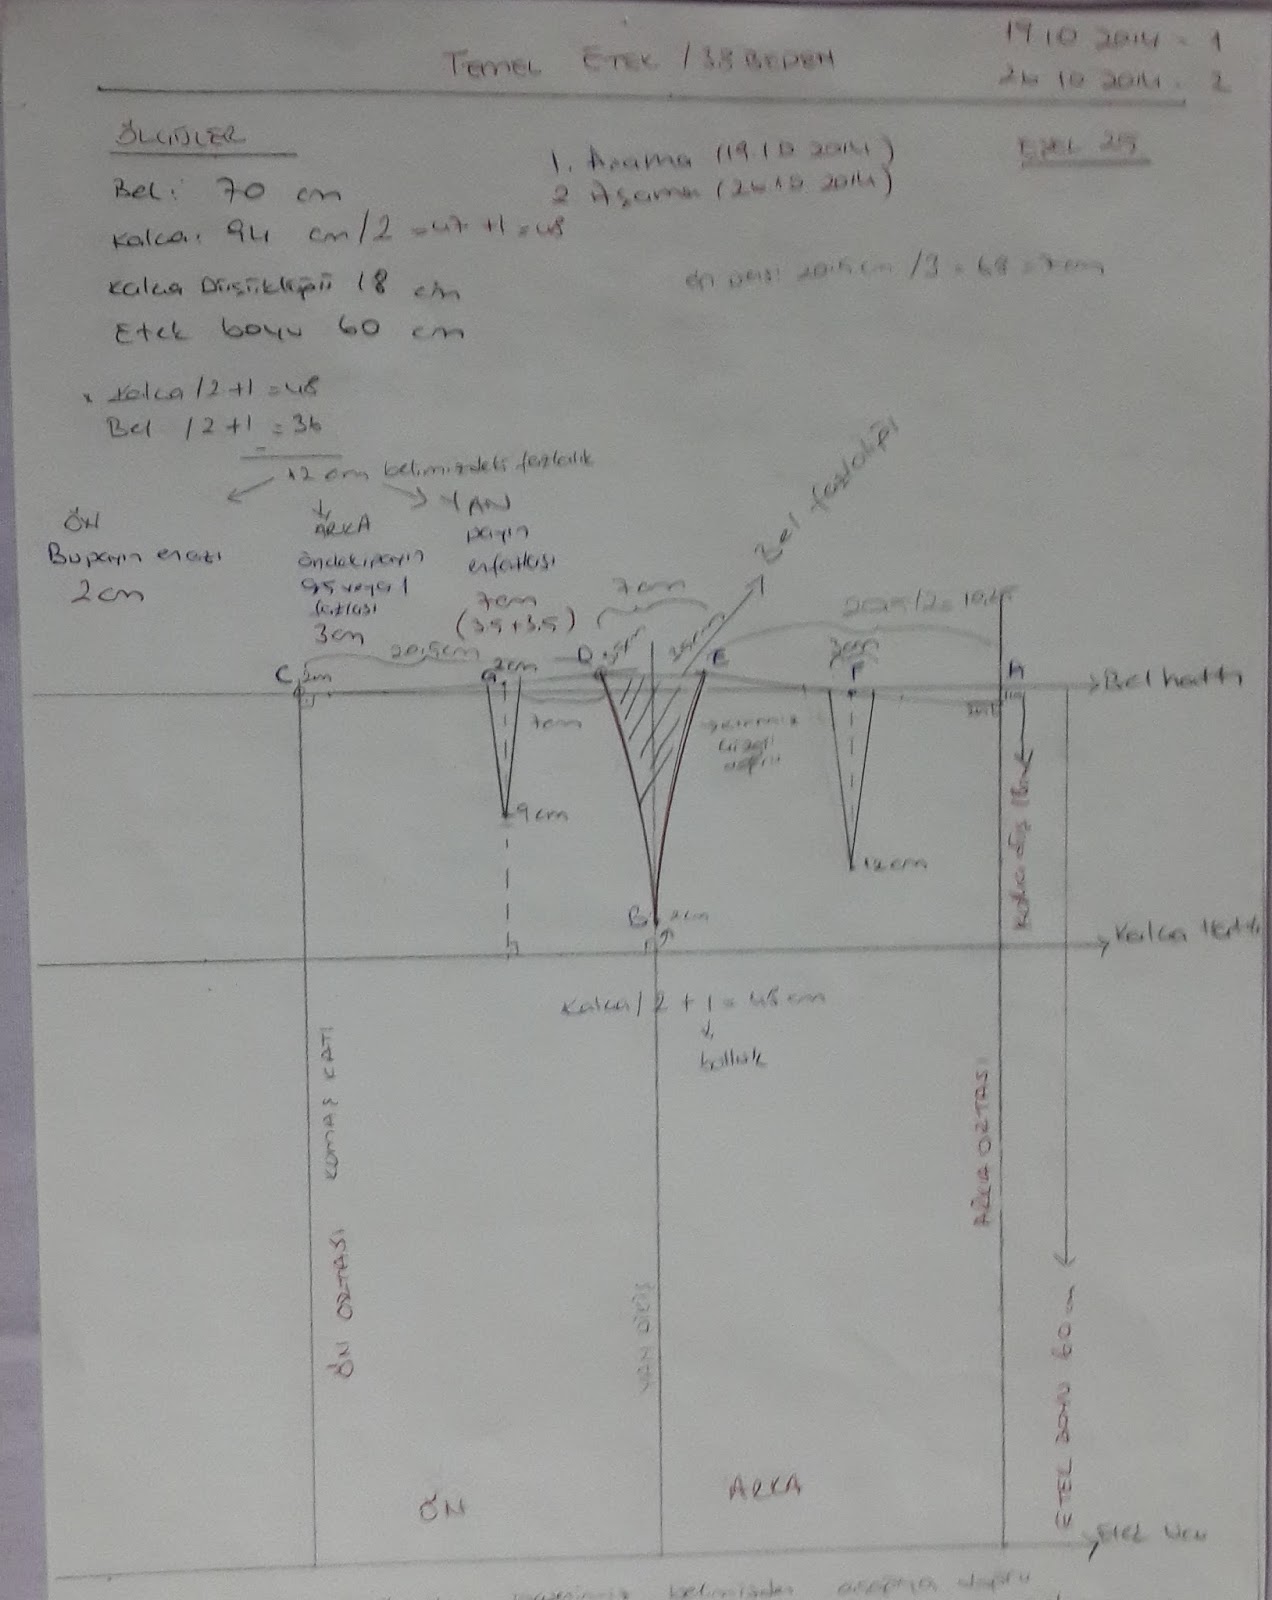 TEMEL ETEK / 38 BEDEN
19 10 2014 - 1
26 10 2014 - 2
ÖLÇÜLER
Bel: 70 cm
Kalça: 94 cm/2 = 47 +1 = 48
Kalça Düşüklüğü 18 cm
Etek boyu 60 cm
1. Aşama (19.10 2014)
2 Aşama (26.10 2014)
20.5 cm /3 = 6.8 = 7 cm
x Kalça /2 +1 = 48
Bel /2 +1 = 36
12 cm belimizdeki fazlalık
ÖN
Bu payın en azı
2 cm
ARKA
öndeki payın
0,5 veya 1
fazlası
3 cm
YAN
payın
en fazlası
7 cm
(3.5 + 3.5)
Bel fazlalığı
7 cm
20.5/2 = 10,25
20.5 cm
C
2cm
D
E
3.5 cm
3cm
F
A
Bel hattı
7cm
9 cm
12 cm
B
2cm
Kalça düş. 18cm
Kalça Hattı
Kalça / 2 + 1 = 48 cm
bolluk
KUMAŞ KATI
ÖN ORTASI
YAN DİKİŞ
ARKA ORTASI
ETEK BOYU 60 cm
ÖN
ARKA
Etek Ucu
belimizden aşağıya doğru